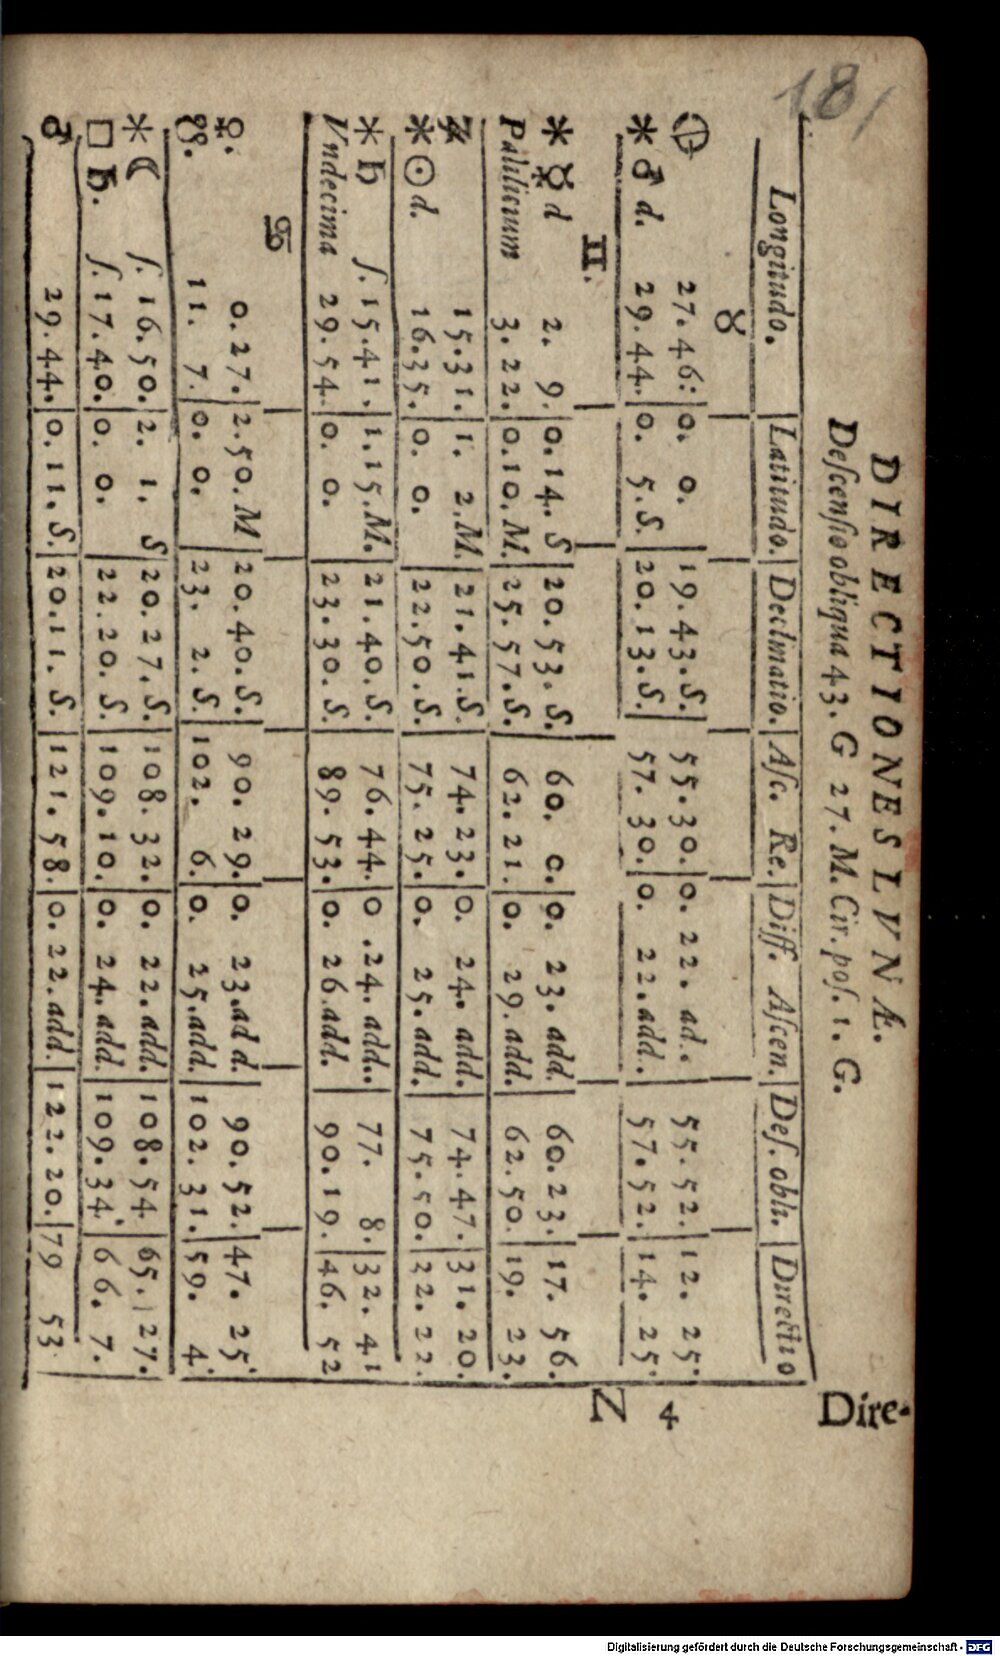 181
DIRECTIONES LVNÆ.
Deſcenſio obliqua 43. G 27. M. Cir. poſ. 1. G.
Longitudo. | Latitudo. | Declinatio. | Aſc. Re. | Diff. Aſcen. | Deſ. obli. | Directio
♉
🜨 27. 46: | 0. 0. | 19. 43. S. | 55. 30. | 0. 22. ad. . | 55. 52. | 12. 25.
⚹ ♂ d. 29. 44. | 0. 5. S. | 20. 13. S. | 57. 30. | 0. 22. add. | 57. 52. | 14. 25.
♊.
⚹ ☿ d 2. 9. | 0. 14. S | 20. 53. S. | 60. 0. | 0. 23. add. | 60. 23. | 17. 56.
Palilicium 3. 22. | 0. 10. M. | 25. 57. S. | 62. 21. | 0. 29. add. | 62. 50. | 19. 23.
♃ 15. 31. | 1. 2. M. | 21. 41. S. | 74. 23. | 0. 24. add. | 74. 47. | 31. 20.
⚹ ☉ d. 16. 35. | 0. 0. | 22. 50. S. | 75. 25. | 0. 25. add. | 75. 50. | 32. 22.
⚹ ♄ ſ. 15. 41. | 1. 15. M. | 21. 40. S. | 76. 44. | 0 . 24. add.. | 77. 8. | 32. 41
Vndecima 29. 54. | 0. 0. | 23. 30. S. | 89. 53. | 0. 26. add. | 90. 19. | 46. 52
♋
♀. 0. 27. | 2. 50. M | 20. 40. S. | 90. 29. | 0. 23. add. | 90. 52. | 47. 25.
☋. 11. 7. | 0. 0. | 23. 2. S. | 102. 6. | 0. 25. add. | 102. 31. | 59. 4.
⚹ ☾ ſ. 16. 50. | 2. 1. S | 20. 27. S. | 108. 32. | 0. 22. add. | 108. 54 | 65. 27.
□ ♄. ſ. 17. 40. | 0. 0. | 22. 20. S. | 109. 10. | 0. 24. add. | 109. 34. | 66. 7.
♂ 29. 44. | 0. 11. S. | 20. 11. S. | 121. 58. | 0. 22. add. | 122. 20. | 79 53.
N 4
Dire-
Digitalisierung gefördert durch die Deutsche Forschungsgemeinschaft - DFG